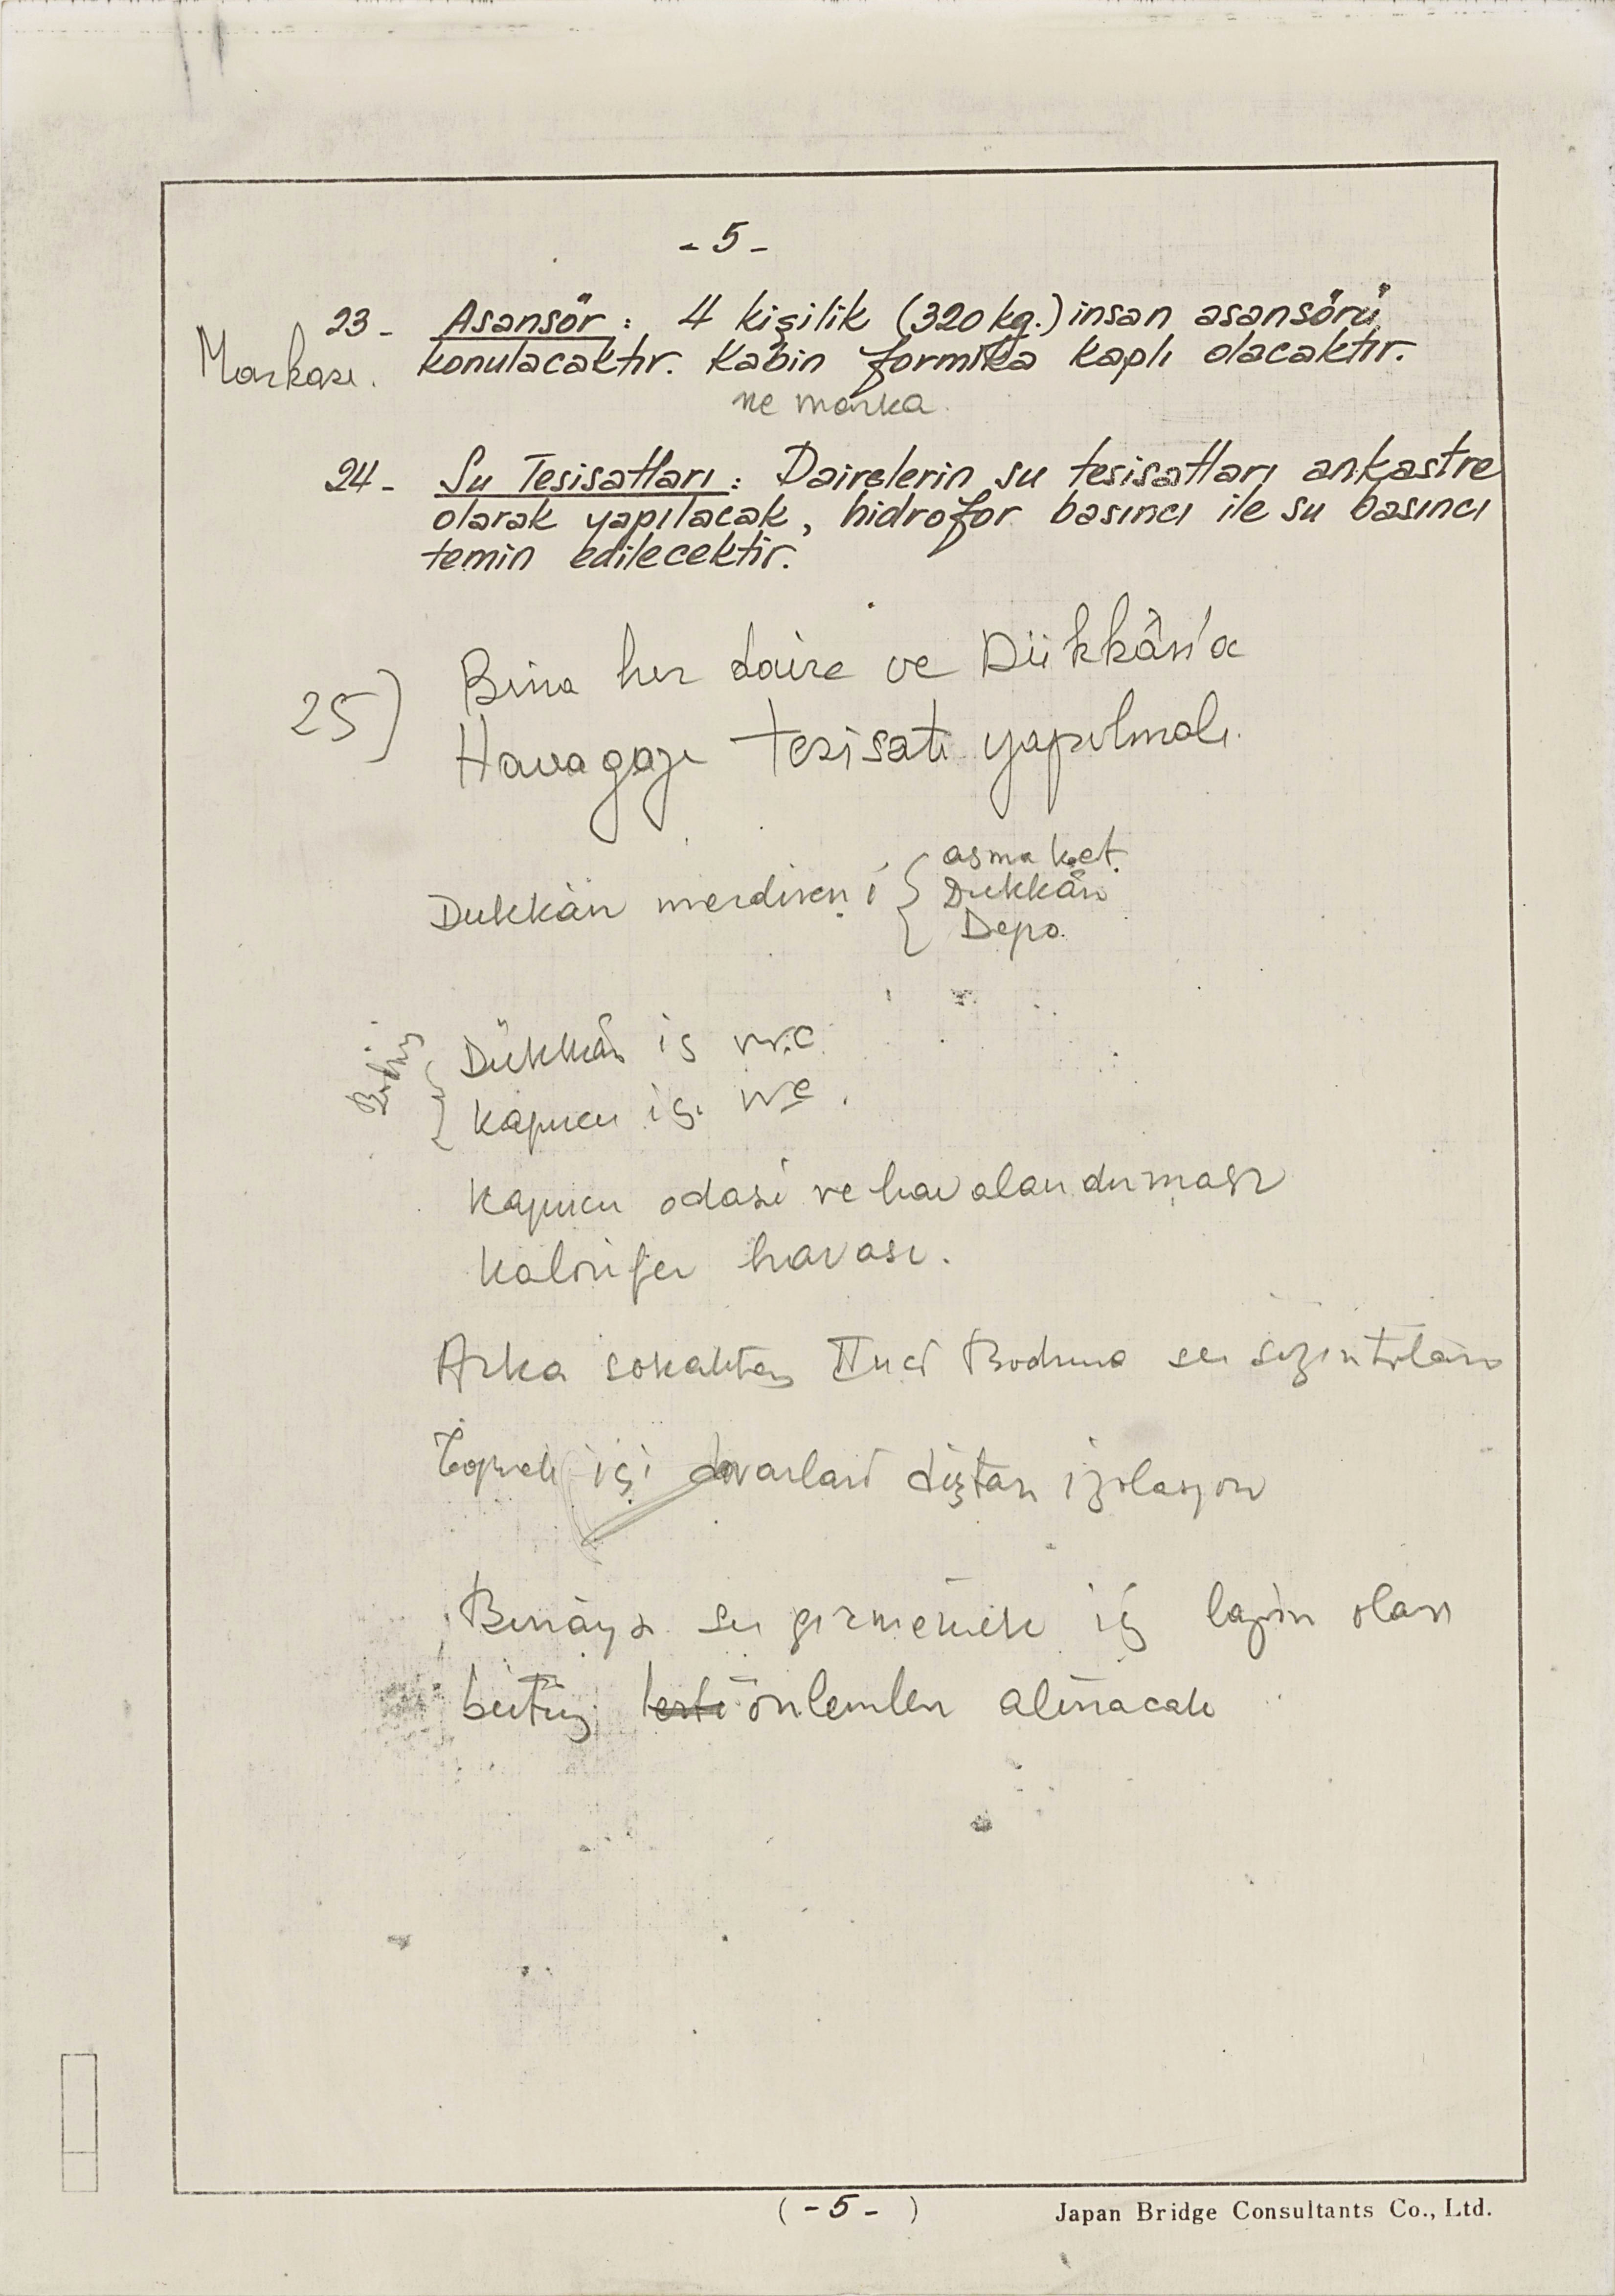 - 5 -
23 - Asansör : 4 kişilik (320 kg.) insan asansörü
Markası.
konulacaktır. Kabin formika kaplı olacaktır.
ne marka
24 - Su Tesisatları : Dairelerin su tesisatları ankastre
olarak yapılacak, hidrofor basıncı ile su basıncı
temin edilecektir.
25) Bina her daire ve Dükkân'a
Havagazı tesisatı yapılmalı.
Dukkân merdiveni { asma kat.
Dukkân
Depo.
Dükkân iç w.c
kapıcı içi wc.
kapıcı odasi ve havalandırması
kalorifer havası.
Arka sokaktan II nci Bodruma su sızıntıları
Toprak içi duvarları dıştan izolasyon
Binaya su girmemek iç lazım olan
bütün önlemler alınacak
( - 5 - )
Japan Bridge Consultants Co., Ltd.